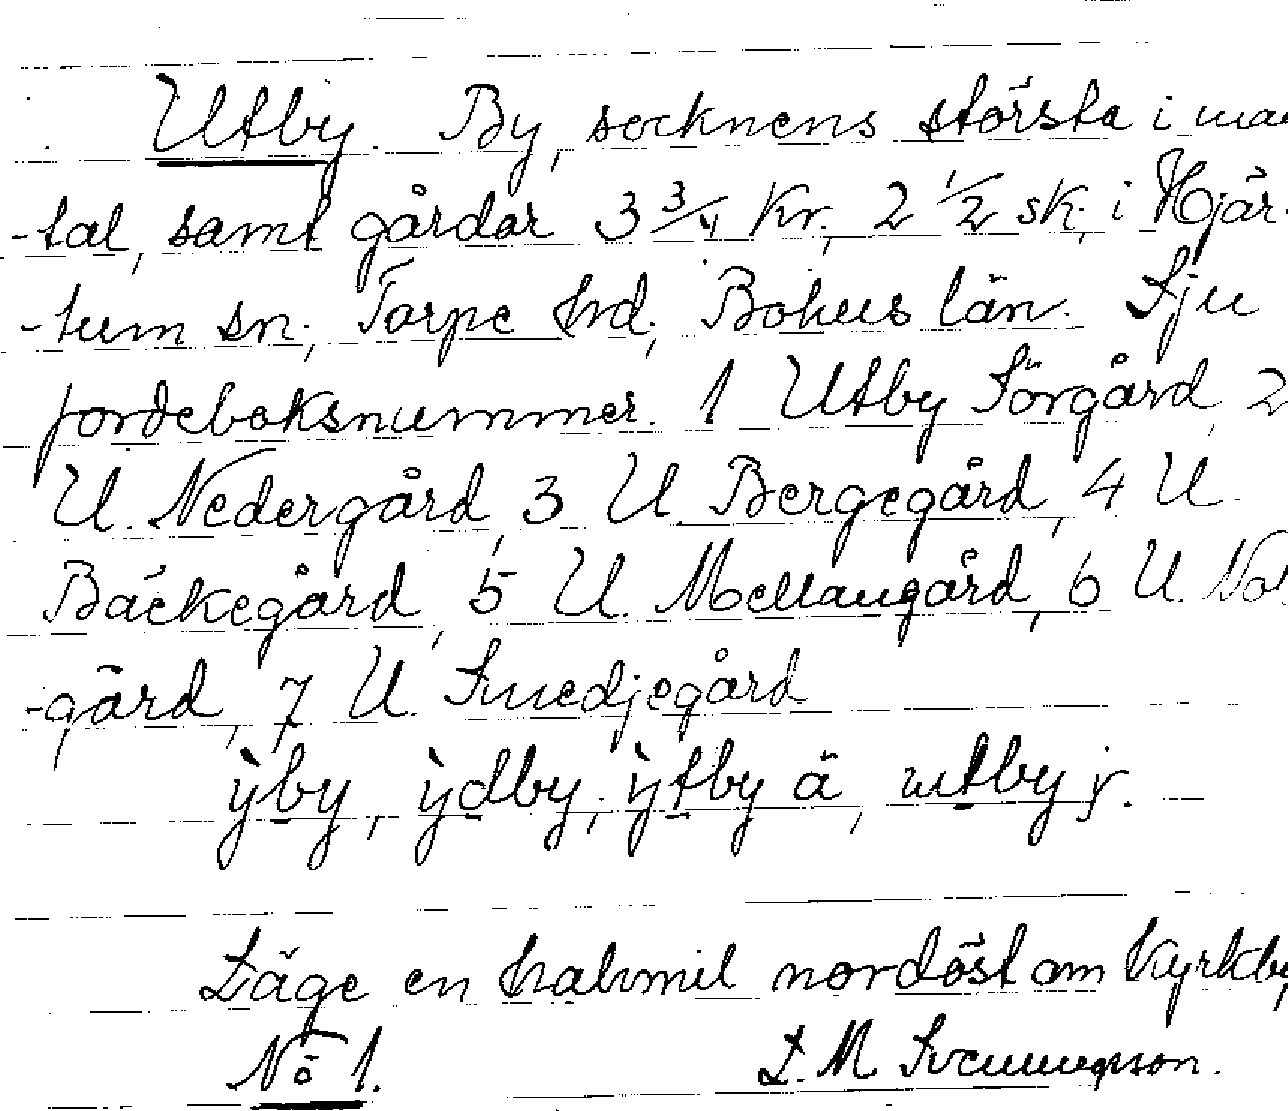 Utby. By, socknens största i man
-tal, samt gårdar 3 3/4 Kr., 2 1/2 sk. i Hjär-
-tum sn., Torpe hrd., Bohus län. Sju
jordeboksnummer. 1 Utby Sörgård, 2
U. Nedergård, 3 U. Bergegård, 4 U.
Bäckegård, 5 U. Mellangård, 6 U. Nol
-gård, 7 U. Smedjegård
ỳby, ỳdby, ỳtby ä, utby j.
Läge en halvmil nordöst om Kyrkby
No 1. L. M. Svenungsson.